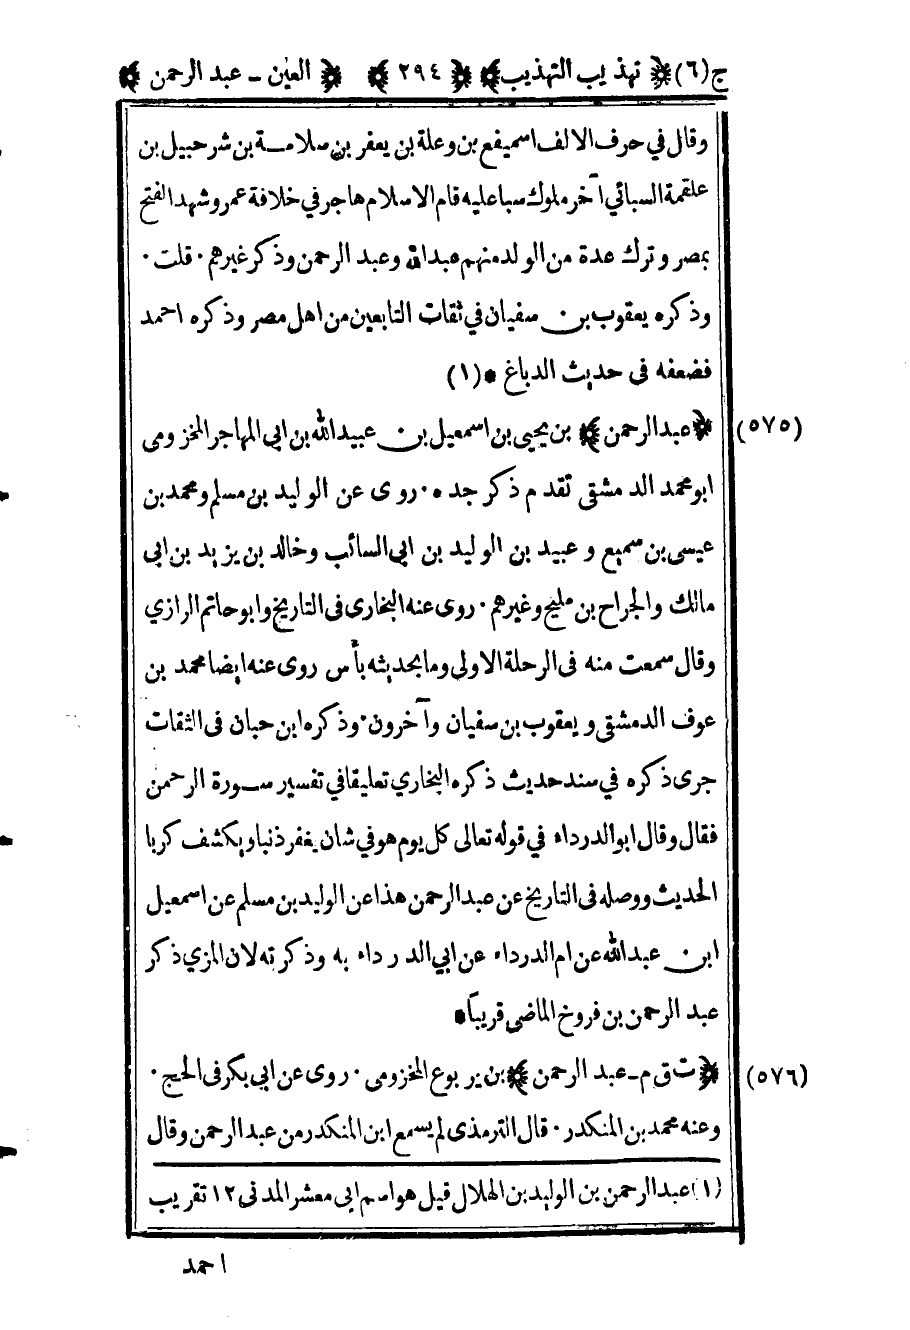 ج(٦) ﴿تهذيب التهذيب﴾ ﴿٢٩٤﴾ ﴿العين - عبد الرحمن﴾
وقال في حرف الالف اسميفع بن وعلة بن يعفر بن سلامة بن شرحبيل بن
علقمة السبائي آخر ملوك سبا عليه قام الاسلام هاجر في خلافة عمر وشهد الفتح
بمصر وترك عدة من الولد منهم عبدالله وعبد الرحمن وذكر غيرهم · قلت ·
وذكره يعقوب بن سفيان في ثقات التابعين من اهل مصر وذكره احمد
فضعفه فى حديث الدباغ * (١)
(٥٧٥) ﴿عبدالرحمن﴾ بن يحيى بن اسمعيل بن عبيدالله بن ابي المهاجر المخزومى
ابو محمد الدمشقى تقدم ذكر جده · روى عن الوليد بن مسلم و محمد بن
عيسى بن سميع و عبيد بن الوليد بن ابى السائب وخالد بن يزيد بن ابى
مالك والجراح بن مليح وغيرهم · روى عنه البخارى فى التاريخ وابو حاتم الرازي
وقال سمعت منه فى الرحلة الاولى وما بحديثه بأس روى عنه ايضا محمد بن
عوف الدمشقى و يعقوب بن سفيان وآخرون · وذكره ابن حبان فى الثقات
جرى ذكره في سند حديث ذكره البخاري تعليقا في تفسير سورة الرحمن
فقال وقال ابو الدرداء في قوله تعالى كل يوم هو في شان يغفر ذنبا ويكشف كربا
الحديث ووصله فى التاريخ عن عبدالرحمن هذا عن الوليد بن مسلم عن اسمعيل
ابن عبدالله عن ام الدرداء عن ابي الدرداء به وذكرته لان المزي ذكر
عبد الرحمن بن فروخ الماضى قريباً *
(٥٧٦) ﴿ت ق م - عبد الرحمن﴾ بن يربوع المخزومى · روى عن ابي بكر فى الحج ·
وعنه محمد بن المنكدر · قال الترمذى لم يسمع ابن المنكدر من عبد الرحمن وقال
(١) عبدالرحمن بن الوليد بن الهلال قيل هو اسم ابى معشر المدنى ١٢ تقريب
احمد